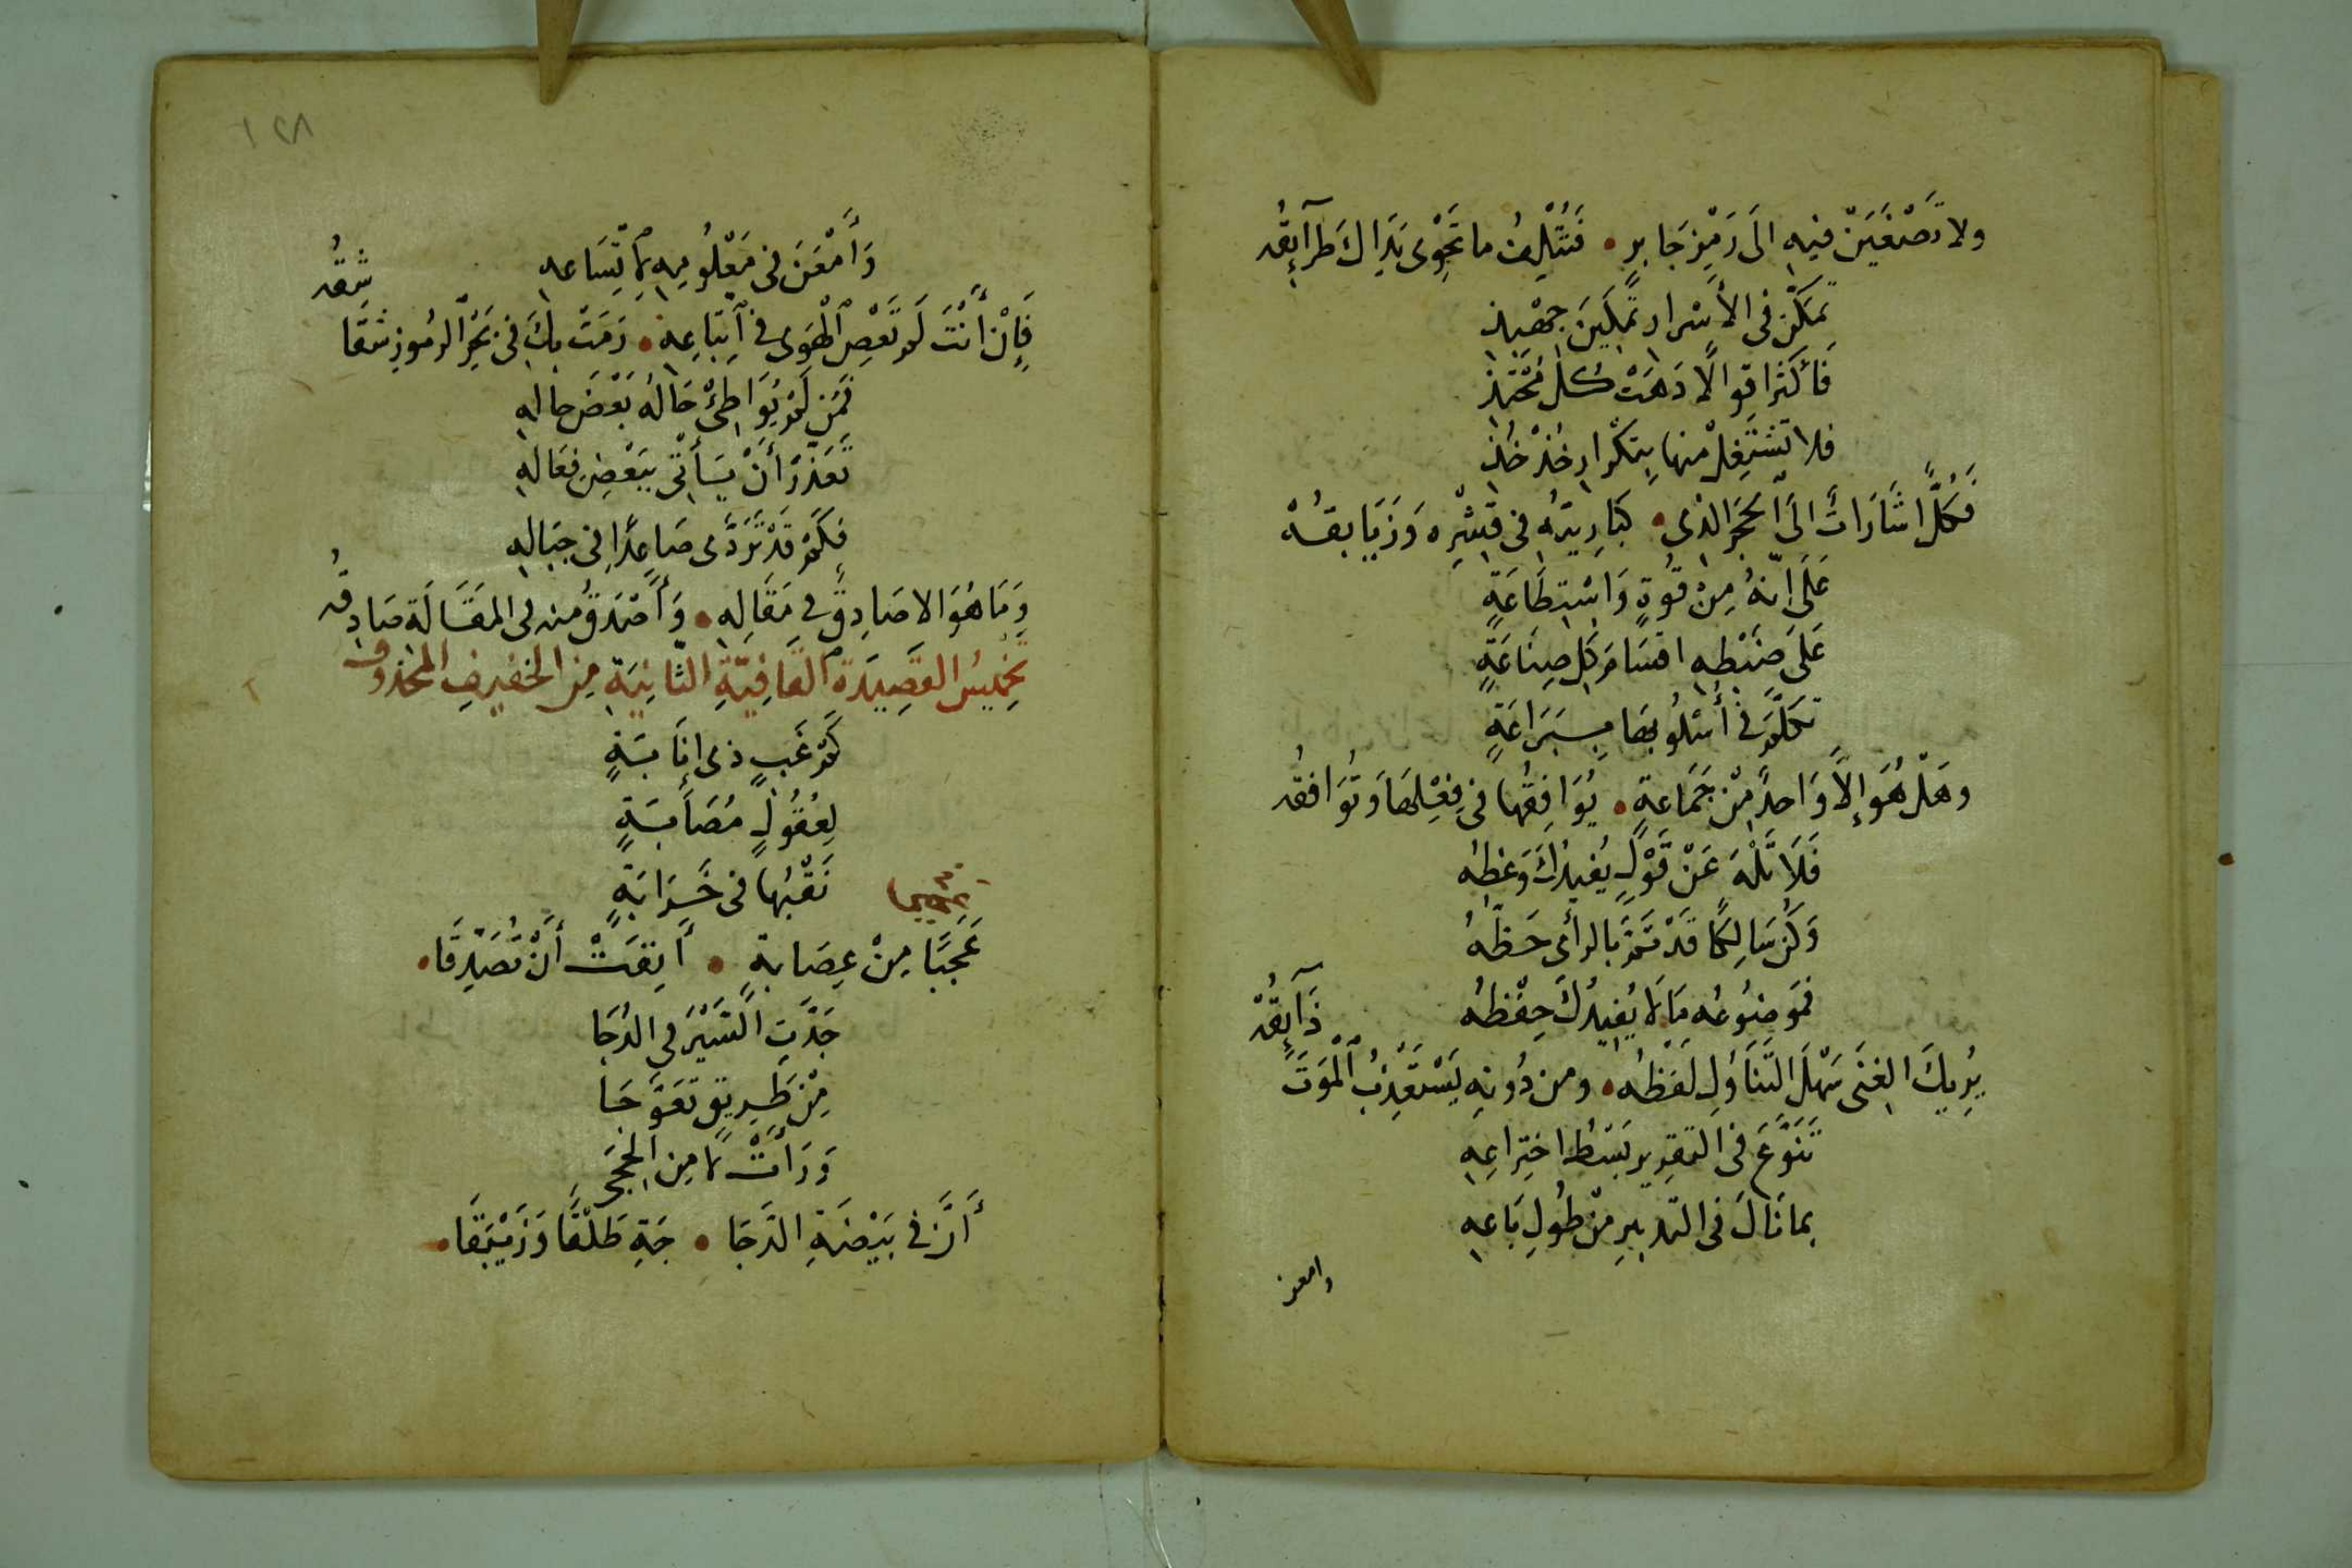 ولا تَصْغَيَنْ فيهِ الَى رَمْزِ جَابرٍ • فَتُتْلِفُ ما تَحْوى يَدَاكَ طَرآئِقُه
تمكّن فى الأسْرار تمكينَ جهْبِذ
فأكثر اقوالًا دَهَتْ كُلَّ مُحْتَذِ
فلا تَشْتَغِلْ منها بِتكْرار خُذْ خُذِ
فكلٌّ اشَارَاتٌ الَى الحَجَر الذى • كبَارِيتُه فى قِشْرِه وَزَيَابقُهْ
عَلَى انّهُ مِنْ قُوةٍ وَاسْتِطَاعَةٍ
عَلَى ضَبْطِه اقسَامَ كلِ صِنَاعَةٍ
تكلّمَ فى أُسْلُوبهَا بِبَرَاعَةٍ
وهَلْ هُوَ إلاَّ وَاحدٌ مِنْ جَمَاعةٍ • يُوَافِقُها فى فِعْلِهَا وَتُوَافقُه
فَلَا تَلْهَ عَنْ قَوْلٍ يُفيدُكَ وَعْظُه
وَكُن سَالِكًا قَدْ تَمَّ بالرأى حَظّهُ
فمَوضُوعُه مَا لَا يُفيدُكَ حِفْظهُ
ذَآئِقُهْ
يُرِيكَ الغِنَى سَهْلَ التَنَاوُلِ لَفظُه • ومن دُونِه يَسْتَعْذِبُ ٱلْمَوتَ
تَنَوَّعَ فى التقرير بَسْطُ اختِراعِهِ
بما نَالَ فى التدبيرِ مِنْ طُولِ بَاعِهِ
وامعن
١٢٨
وَأَمْعَنَ فى مَعْلُومِهِ لاتِّسَاعهِ
شِقُه
فَإِنْ أَنْتَ لَم تَعْصِ الْهَوى فى ٱتِبَاعِهِ • رَمَتْ بِكَ فى بَحْرِ الرمُوزِ شقَا
فمَن لَم يُوَاطِئْ حَالُهُ بَعْضَ حالهِ
تَعَذّرَ أَنْ يَسَأتَى ببَعْضِ فعَالهِ
فكَم قَدْ تَرَدَّى صَاعِدًا فى جِبَالِهِ
وَمَا هُوَ الا صَادِقٌ فى مَقَالِهِ • وَأَصْدَقُ منه فى المقَالَة صَادِقُه
تخميسُ القَصِيدَةِ القَافِيَّةِ الثانِيَةِ مِن الخفيفِ المحذوف
كَم غَبٍ ذى إنَابَةٍ
لِعُقُولٍ مُصَابَةٍ
نَقْبُها فى خَرَابَةٍ
عَجَبًا مِنْ عِصَابةٍ • أَنِفَتْ أَنْ تُصَدِقَا •
جَدّتِ السَّيْرَ فى الدُجَا
مِنْ طَرِيقٍ تعَوَّجَا
وَرَأَتْ لا مِن الحِجَى
أَنَّ فى بَيْضَةِ الدَّجَا • جَةِ طَلْقًا وَزَيْبَقًا •